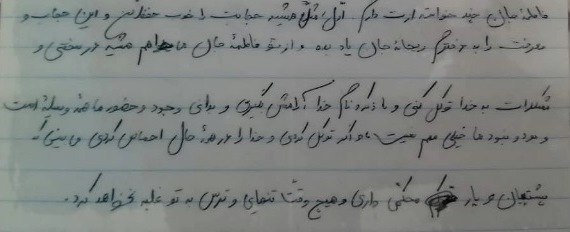 فاطمه جان چند خواسته ازت دارم اول مثل همیشه حجابت را خوب حفظ کن و این حجاب و
معرفت را به دخترم ریحانه جان یاد بده و از تو فاطمه جان می خواهم همیشه در سختی و
مشکلات به خدا توکل کنی و با ذکر و نام خدا آرامش بگیری و برای وجود و حضور ما همه وسیله است
و بود و نبود ما خیلی مهم نیست و اگر توکل کردی و خدا را در همه حال احساس کردی می بینی که
پشتیبان و یار محکمی داری و هیچ وقت تنهایی و ترس به تو غلبه نخواهد کرد.